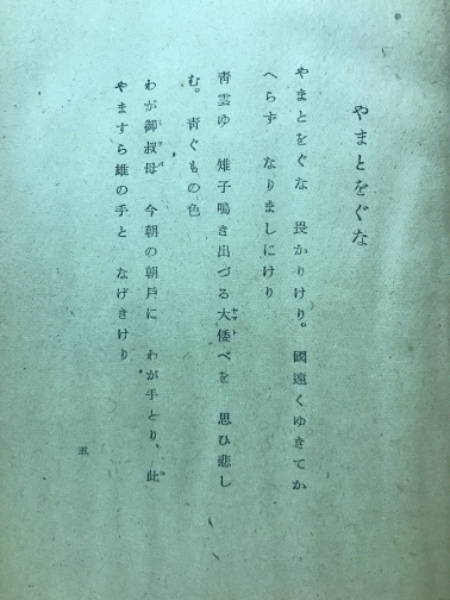 やまとをぐな
やまとをぐな　畏かりけり。　國遠くゆきてか
へらず　なりましにけり
靑雲ゆ　雉子鳴き出づる大倭べを　思ひ悲し
む。靑ぐもの色
わが御叔母　今朝の朝戸に　わが手とり、　此
やますら雄の手と　なげきけり
五